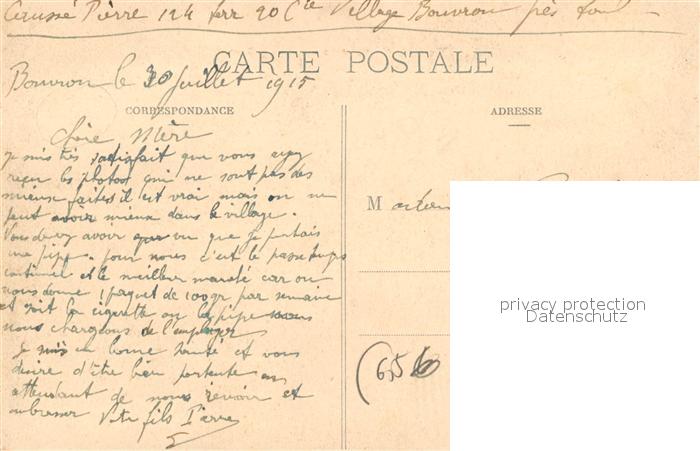 Pierre 124 terr 20 Cie Village Bouvron près Toul
CARTE POSTALE
Bouvron le 30 Juillet 1915
CORRESPONDANCE
ADRESSE
Chère Mère
Je suis très satisfait que vous ayez
reçu les photos qui ne sont pas des
mieux faites il est vrai mais on ne
peut avoir mieux dans le village.
Vous devez avoir vu que je portais
une pipe. pour nous c'est le passe temps
continuel et le meilleur marché car on
nous donne 1 paquet de 100gr par semaine
et soit la cigarette ou la pipe nous
nous chargeons de l'employer
Je suis en bonne santé et vous
désire d'être bien portante en
attendant de nous revoir et
embrasser Votre fils Pierre
M
privacy protection
Datenschutz